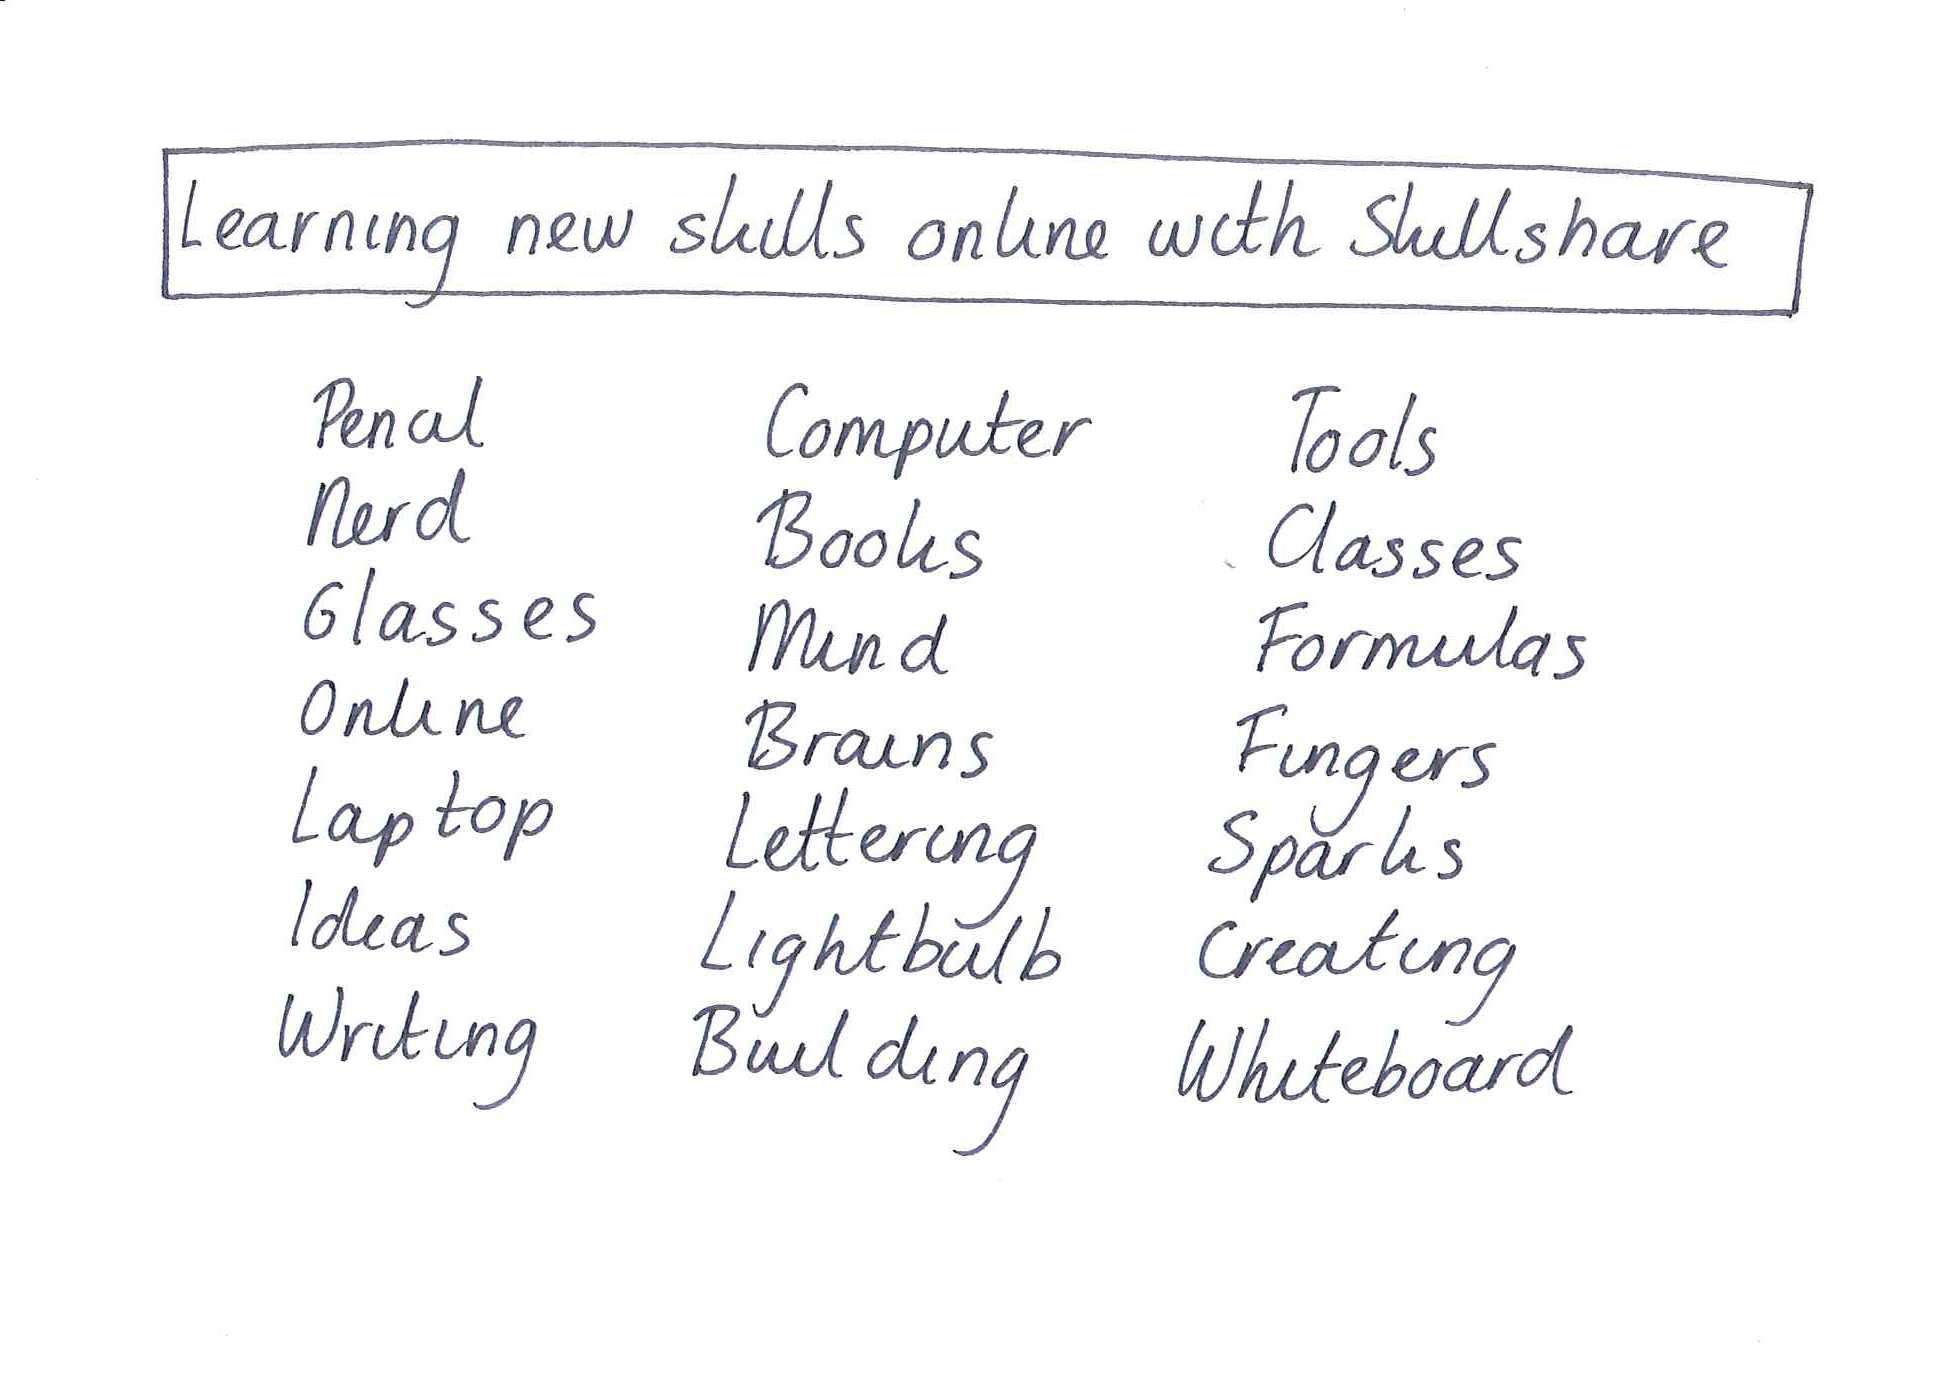 Learning new skills online with Skillshare
Pencil
Nerd
Glasses
Online
Laptop
Ideas
Writing
Computer
Books
Mind
Brains
Lettering
Lightbulb
Building
Tools
Classes
Formulas
Fingers
Sparks
Creating
Whiteboard